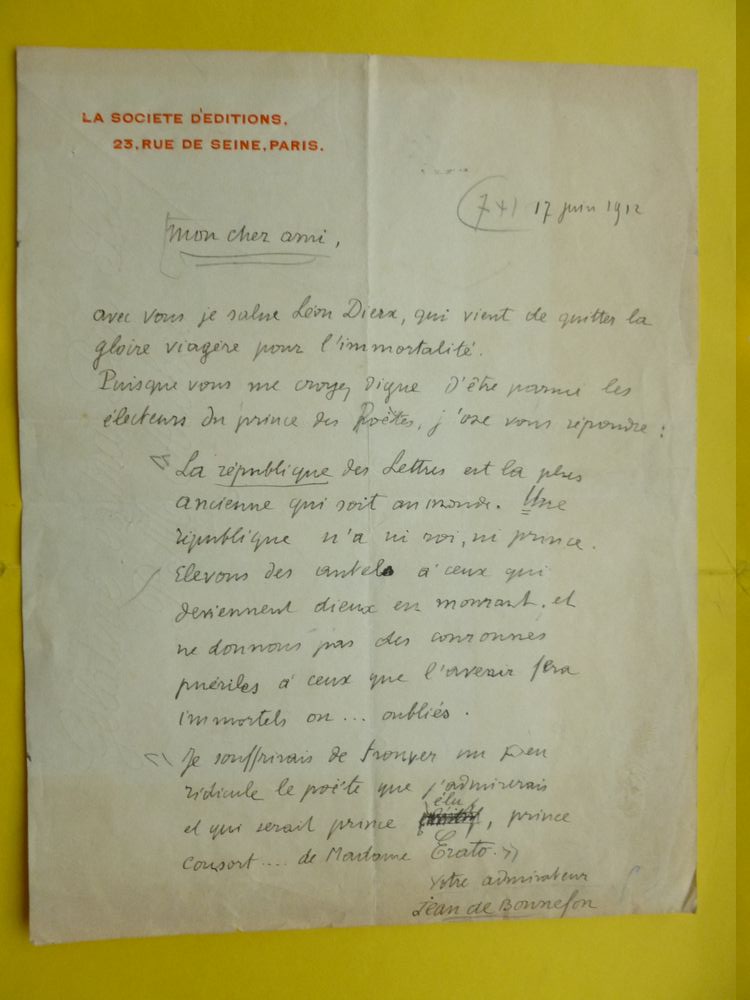 LA SOCIETE D'EDITIONS,
23, RUE DE SEINE, PARIS.
17 juin 1912
Mon cher ami,
avec vous je salue Léon Dierx, qui vient de quitter la
gloire viagère pour l'immortalité.
Puisque vous me croyez digne d'être parmi les
électeurs du prince des Poëtes, j'ose vous répondre :
« La république des Lettres est la plus
ancienne qui soit au monde. Une
république n'a ni roi, ni prince.
Elevons des autels à ceux qui
deviennent dieux en mourant, et
ne donnons pas des couronnes
puériles à ceux que l'avenir fera
immortels ou ... oubliés.
« Je souffrirais de trouver un peu
ridicule le poëte que j'admirerais
et qui serait prince élu, prince
consort .... de Madame Erato. »
Votre admirateur
Jean de Bonnefon